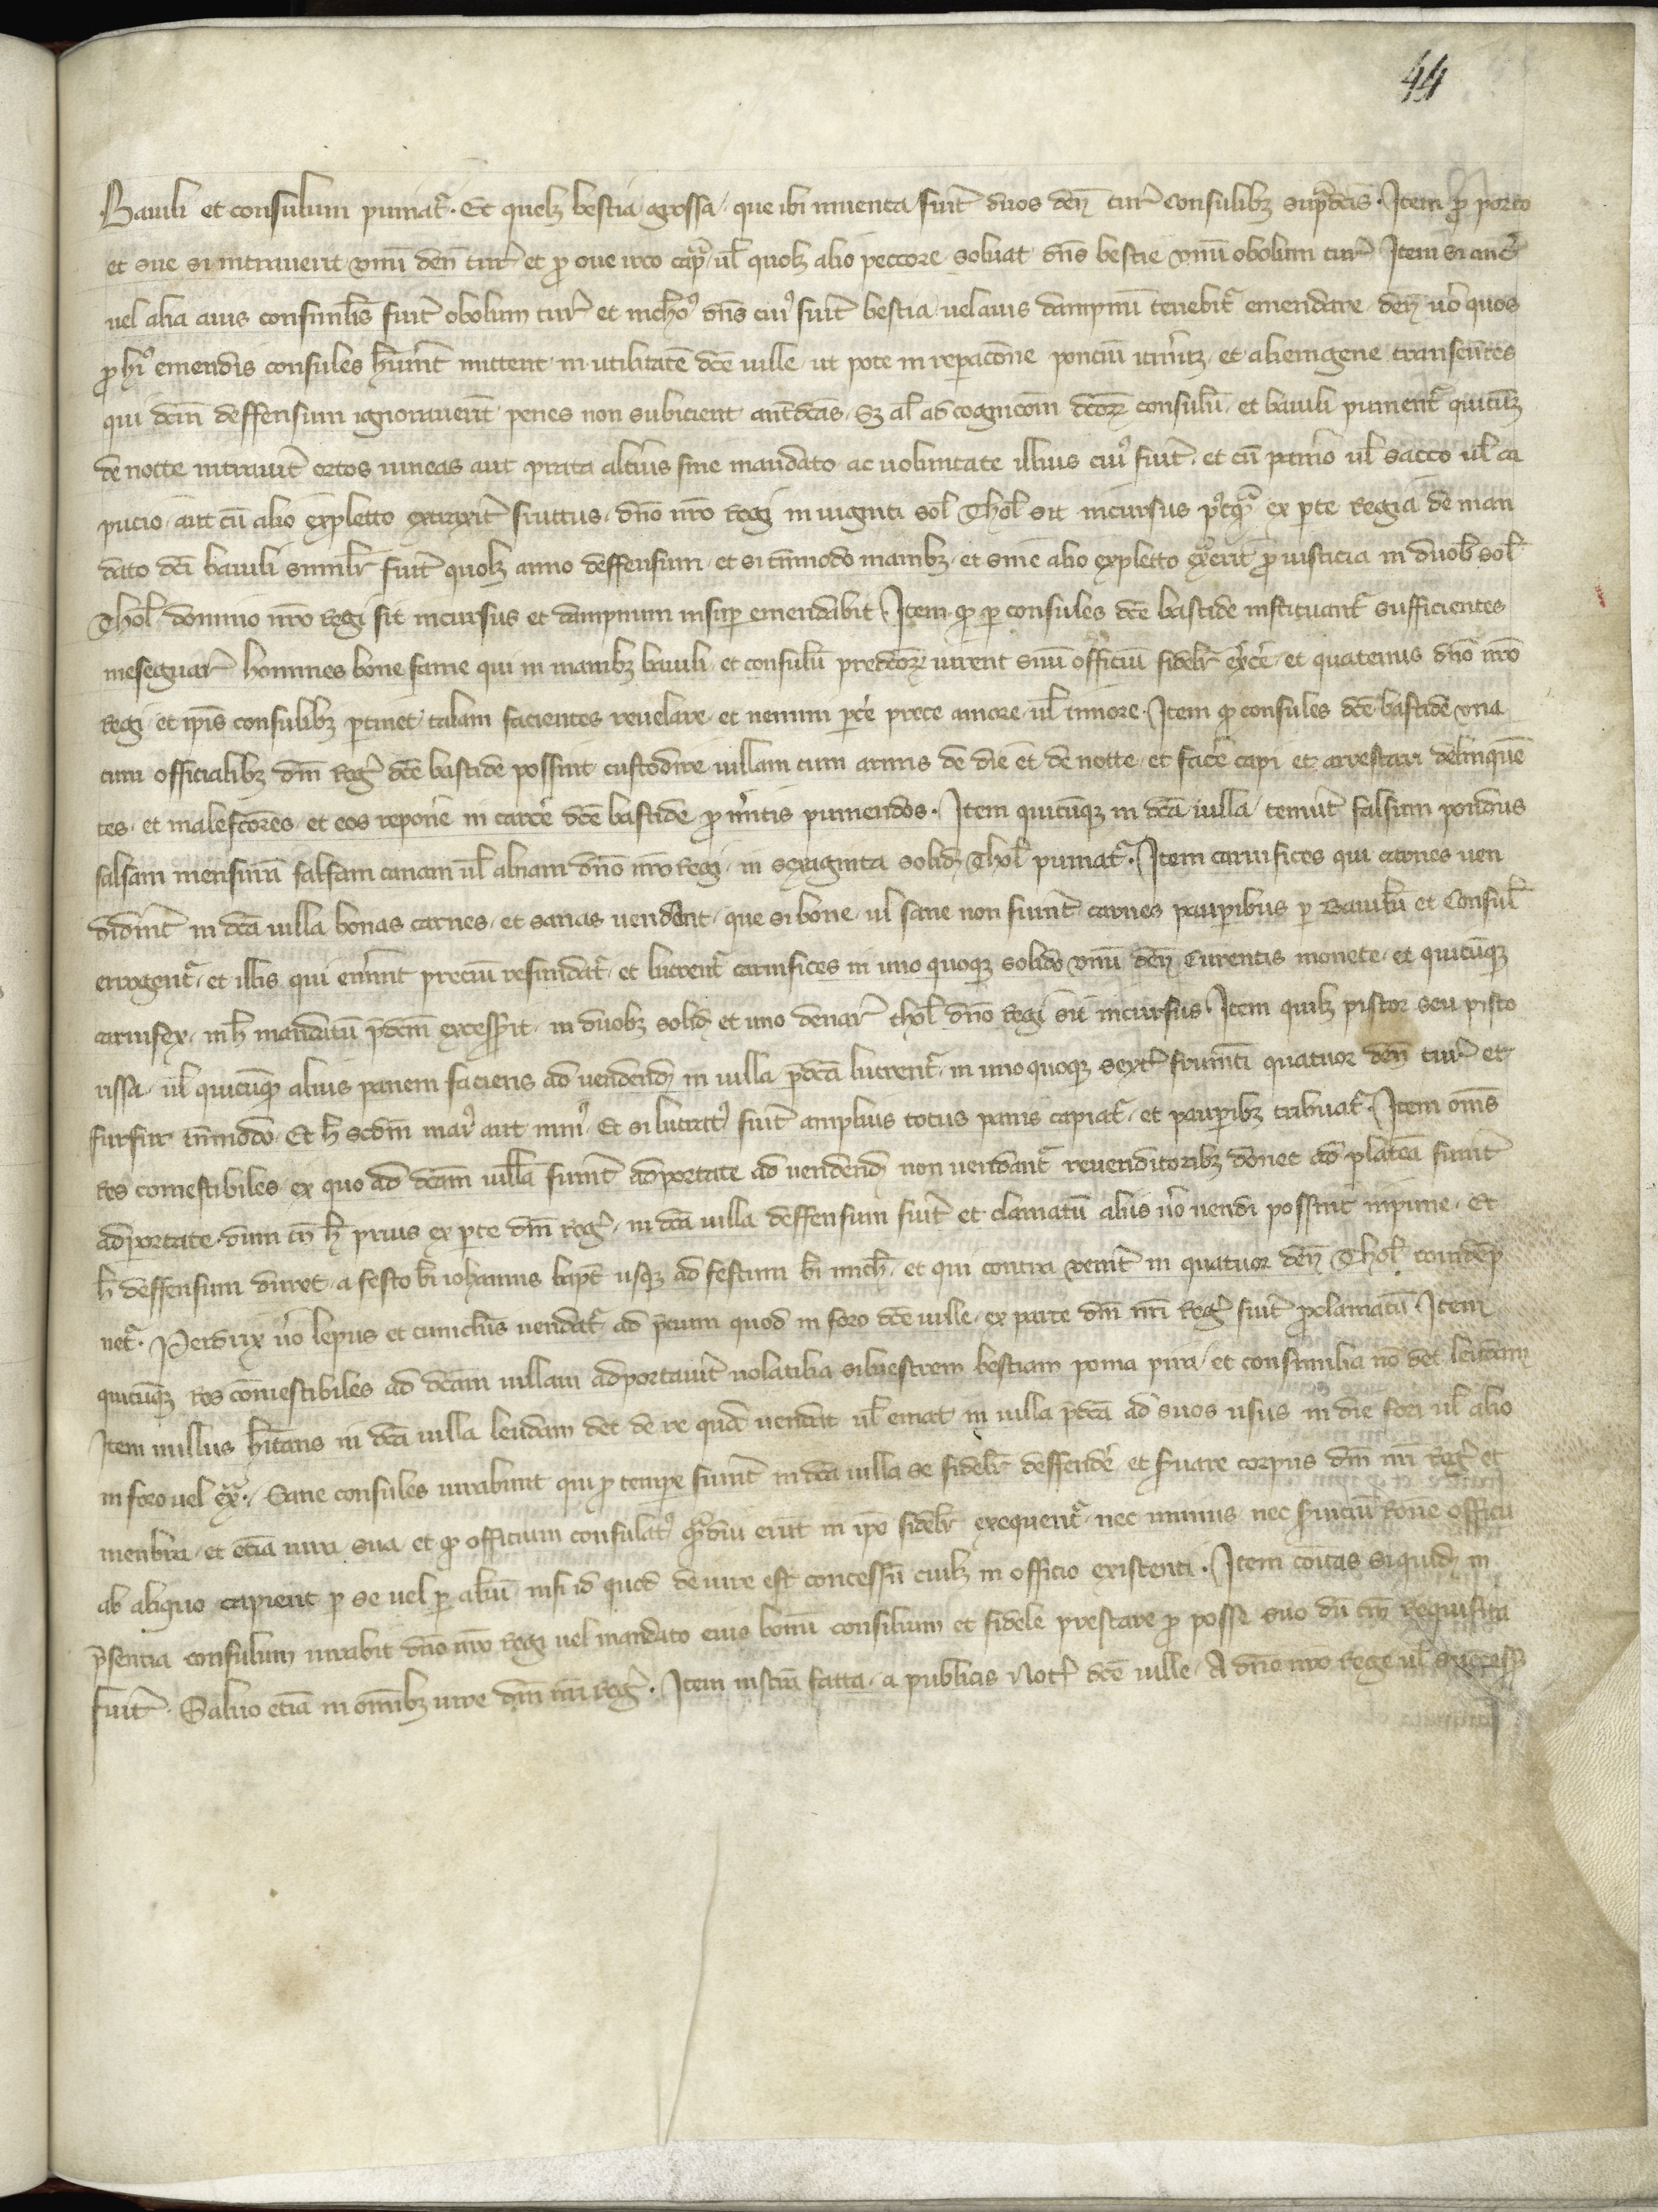 44
Baiuli et consulum puniat᷑. Et quelꝫ bestia grossa que ibi inuenta fu͛it duos deñ tur᷑ Consulibꝫ sup͛dc̄is. Item ꝓ porco
et sue si intrauerit vnū deñ tur᷑ et ꝓ oue irco cap͛ ul̄ quolꝫ alio peccore soluat dn̄s bestie vnū obolum tur᷑ Item si anc͛
uel alia auis consimilis fu͛it obolum tur᷑ et nich̓o᷒ dn̄s cui᷒ fu͛it bestia uel auis dampnū tenebit᷑ emendare deñ uō quos
ꝓ hi᷒ emendis consules hūint mittent in utilitatē dc̄e uille ut pote in reꝑacōne ponciū itin͛ꝫ et alienigene transeūtes
qui dc̄m deffensum ignorauerīt penes non subicient ant̄dc̄as. Sꝫ al̄ ad cognicōm dc̄oꝝ consulū et baiuli punient᷑ quicūqꝫ
de notte intrau͛it ortos uineas aut prata alterius sine mandato ac uoluntate illius cui᷒ fu͛it et cū pan͛io ul̄ sacco ul̄ ca
pucio aut cū alio expletto extrax͛it fruttus dn̄o nr̄o Regi in uiginti sol̄ Thol̄ sit incursus p᷒tq͛ ex ꝑte Regia de man
dato dc̄i baiuli similr̄ fu͛it quolꝫ anno deffensum et si tn̄modo manibꝫ et sine alio expletto ex͛it ꝓ iusticia in duob̄ sol̄
Thol̄ domino nr̄o Regi sit incursus et dampnum insuꝑ emendabit Item ꝙ ꝑ consules dc̄e bastide instituant᷑ sufficientes
meseguar᷑ homines bone fame qui in manibꝫ baiuli et consulū predc̄oꝝ iurent suū officiū fidelr̄ ex͛c͛e et quatenus dn̄o nr̄o
Regi et ip̄is consulibꝫ ꝑtinet talam facientes reuelare et nemini ꝑc͛e prece amore ul̄ timore. Item ꝙ consules dc̄e bastide vna
cum officialibꝫ dn̄i Reg᷑ dc̄e bastide possint custodire uillam cum armis de die et de notte et fac͛e capi et arrestari delinquē
tes et malefc̄ores et eos repon͛e in carc͛e dc̄e bastide ꝓ m͛itis puniendos. Item quicūqꝫ in dc̄a uilla tenu͛it falsum pondus
falsam mensurā falsam canam ul̄ alnam dn̄o nr̄o Regi in sexaginta solid̄ Thol̄ puniat᷑. Item carnifices qui carnes uen
did͛int in dc̄a uilla bonas carnes et sanas uendent que si bone ul̄ sane non fu͛int carnes pauꝑibus ꝑ Baiulū et Consul̄
errogent᷑ et illis qui em͛int preciū refundat᷑ et lucrent᷑ carnifices in uno quoqꝫ solido vnū deñ Currentis monete et quicūqꝫ
carnifex in h̄ mandatū p̄dc̄m excess͛it in duobꝫ solid̄ et uno denar᷑ thol̄ dn̄o Regi sit incursus. Item quilꝫ pistor seu pisto
rissa ul̄ quicūqꝫ alius panem faciens ad uendend̄ in uilla p̄dc̄a lucrent᷑ in uno quoqꝫ sext᷑ frum̄ti quatuor deñ tur᷑ et
furfur tn̄modo Et h̄ scdm̄ mai᷒ aut min᷒ Et si lucrat᷒ fu͛it amplius totus panis capiat᷑ et pauꝑibꝫ tribuat᷑. Item om̄s
Res comestibiles ex quo ad dc̄am uillā fu͛int adportate ad uendend̄ non uendant᷑ reuenditoribꝫ donec ad plateā fu͛int
adportate dum tn̄ h̄ prius ex ꝑte dn̄i Reg᷑ in dc̄a uilla deffensum fu͛it et clamatū aliis uō uendi possint inpune Et
h̄ deffensum duret a festo bi͛ iohannis bapt᷑ usqꝫ ad festum bi͛ mich̄ et qui contra ven͛it in quatuor deñ Thol̄ condēp
net᷑. Perdix uō lepus et cuniclus uendat᷑ ad p̄cium quod in foro dc̄e uille ex parte dn̄i nr̄i Reg᷑ fu͛it ꝓclamatū Item
quicūqꝫ Res comestibiles ad dc̄am uillam adportau͛it uolatilia siluestrem bestiam poma pira et consimilia nō det leudam
Item nullus h̄itans in dc̄a uilla leudam det de re quā uendat ul̄ emat in uilla p̄dc̄a ad suos usus in die fori ul̄ alio
in foro uel ex͛. Sane consules iurabunt qui ꝓ tempe fu͛int in dc̄a uilla se fidelr̄ deffend͛e et s͛uare corpus dn̄i nr̄i Reg᷑ et
menbra et etiā iura sua et ꝙ officium consulat᷒ q͛mdiu erūt in ip̄o fidelr̄ exequent᷑ nec munus nec s͛uiciū Rōne officii
ab aliquo capient ꝑ se uel ꝑ aliū nisi id quod de iure est concessū cuilꝫ in officio existenti. Item cōitas siquid̄ in
p̄sentia consulum iurabit dn̄o nr̄o Regi uel mandato eius bonū consilium et fidele prestare ꝓ posse suo dū tn̄ Requisita
fu͛it. Saluo etiā in om̄ibꝫ iure dn̄i nr̄i Reg᷑. Item instr̄a fatta a publicis Not᷑ dc̄e uille A dn̄o nr̄o Rege ul̄ successor